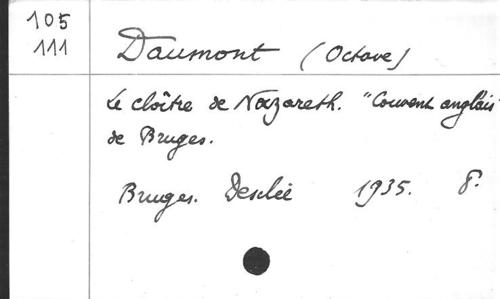 105
111
Daumont (Octave)
Le cloître de Nazareth. "Couvent anglais"
de Bruges.
Bruges. Desclée 1935. 8°.